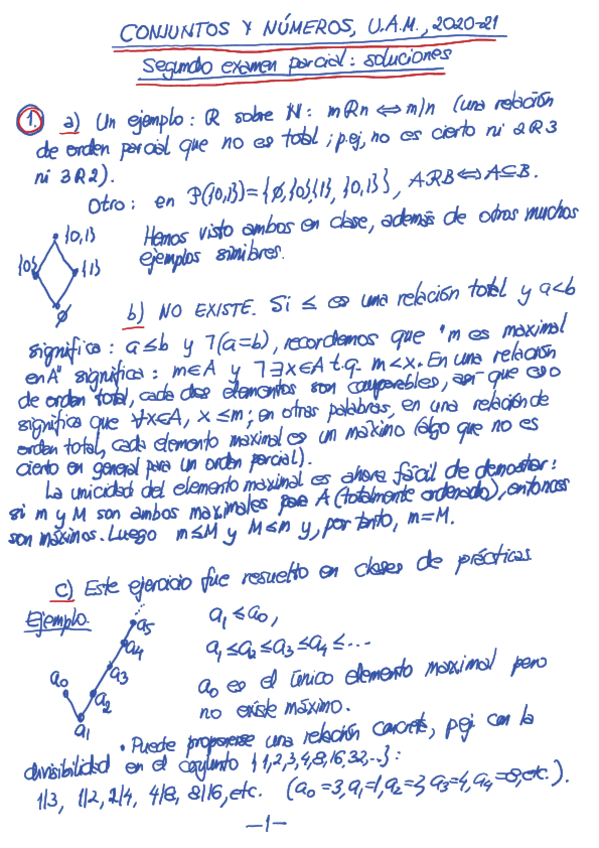 CONJUNTOS Y NÚMEROS, U.A.M., 2020-21
Segundo examen parcial: soluciones
1. a) Un ejemplo: R sobre N: mRn ⟺ m|n (una relación
de orden parcial que no es total; p.ej, no es cierto ni 2R3
ni 3R2).
Otro: en P({0,1})={∅,{0},{1},{0,1}}, ARB⟺A⊆B.
{0,1}
{0} {1}
∅
Hemos visto ambos en clase, además de otros muchos
ejemplos similares.
b) NO EXISTE. Si ≤ es una relación total y a<b
significa: a≤b y ¬(a=b), recordemos que "m es maximal
en A" significa: m∈A y ¬∃x∈A t.q. m<x. En una relación
de orden total, cada dos elementos son comparables, así que eso
significa que ∀x∈A, x≤m; en otras palabras, en una relación de
orden total, cada elemento maximal es un máximo (algo que no es
cierto en general para un orden parcial).
La unicidad del elemento maximal es ahora fácil de demostrar:
si m y M son ambos maximales para A (totalmente ordenado), entonces
son máximos. Luego m≤M y M≤m y, por tanto, m=M.
c) Este ejercicio fue resuelto en clases de prácticas
Ejemplo.
a₅
a₄
a₃
a₀
a₂
a₁
a₁≤a₀,
a₁≤a₂≤a₃≤a₄≤...
a₀ es el único elemento maximal pero
no existe máximo.
• Puede proponerse una relación concreta, p.ej. con la
divisibilidad en el conjunto {1,2,3,4,8,16,32,...}:
1|3, 1|2, 2|4, 4|8, 8|16, etc. (a₀=3, a₁=1, a₂=2, a₃=4, a₄=8, etc.).
—1—